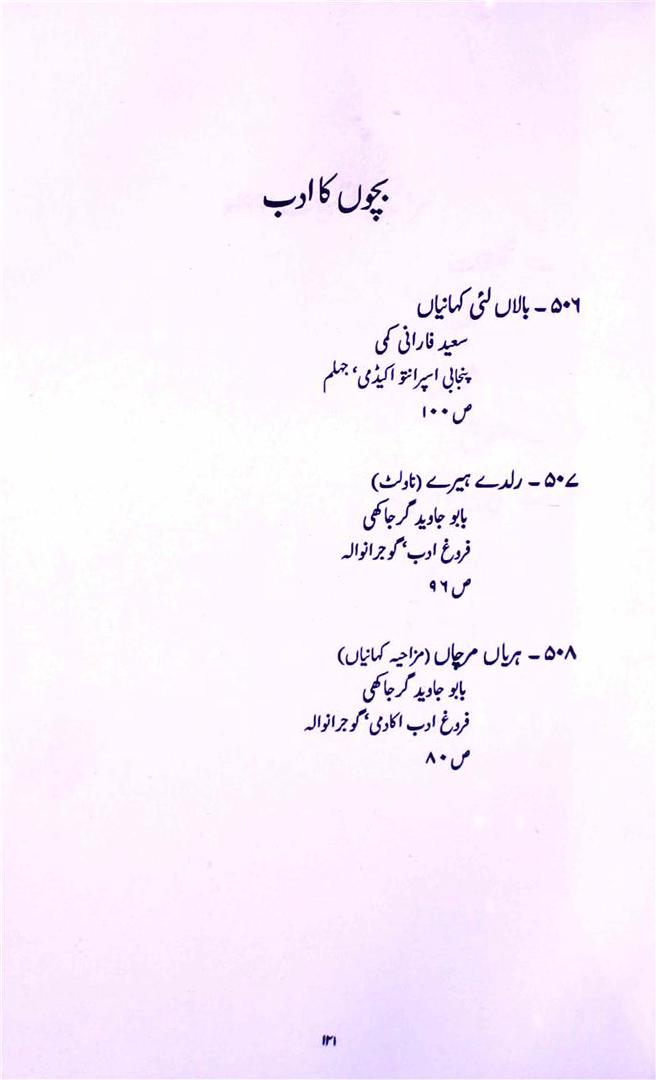 بچوں کا ادب
۵۰۶ ۔ بالاں لئی کہانیاں
سعید فارانی کمی
پنجابی اسپرانتو اکیڈمی، جہلم
ص ۱۰۰
۵۰۷ ۔ رلدے ہیرے (ناولٹ)
بابو جاوید گرجاکھی
فروغ ادب، گوجرانوالہ
ص ۹۶
۵۰۸ ۔ ہریاں مرچاں (مزاحیہ کہانیاں)
بابو جاوید گرجاکھی
فروغ ادب اکادمی، گوجرانوالہ
ص ۸۰
۱۲۱